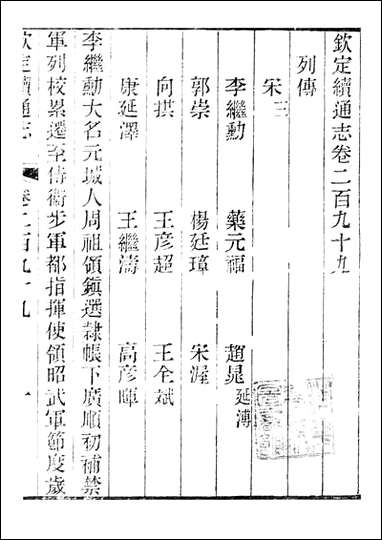 欽定續通志卷二百九十九
列傳
宋三
李繼勳 藥元福 趙晁延溥
郭崇 楊廷璋 宋渥
向拱 王彥超 王全斌
康延澤 王繼濤 高彥暉
李繼勳大名元城人周祖領鎮選隸帳下廣順初補禁
軍列校累遷至侍衛步軍都指揮使領昭武軍節度歲
欽定續通志 卷二百九十九 一